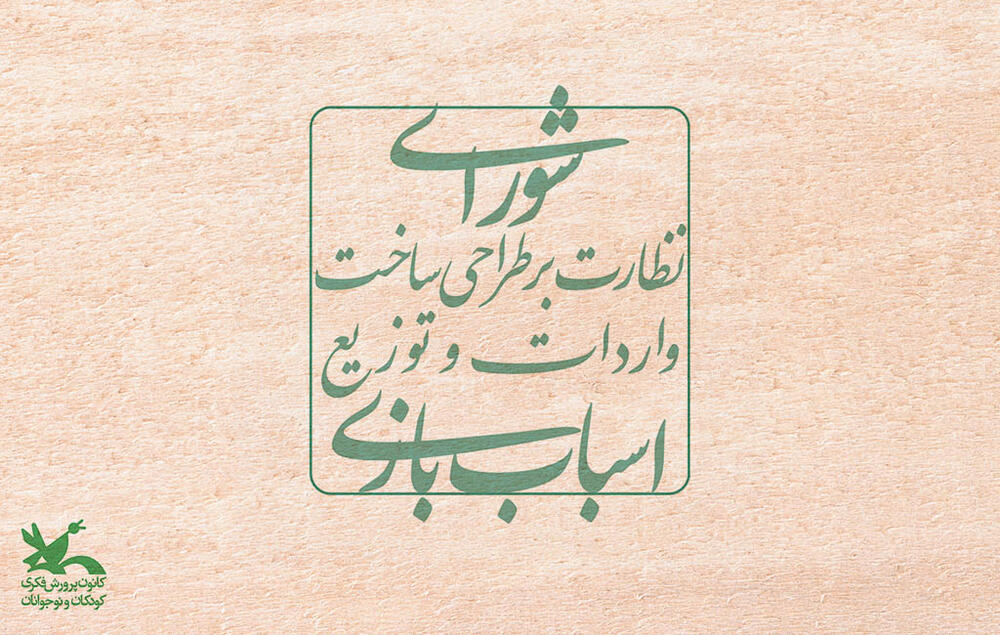 شورای
نظارت بر طراحی ساخت
واردات و توزیع
اسباب بازی
کانون پرورش فکری
کودکان و نوجوانان